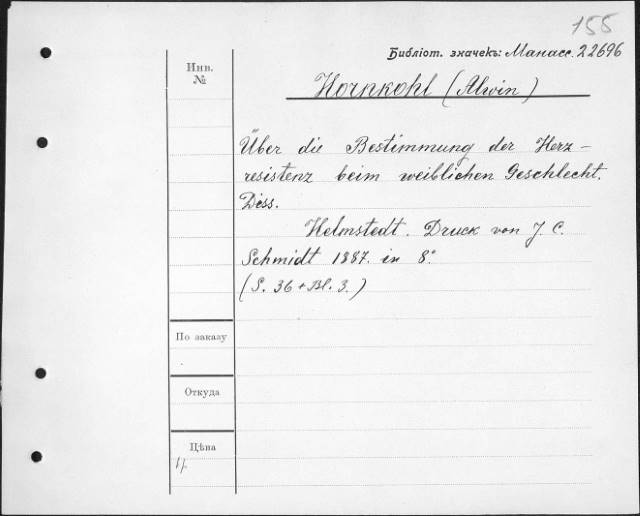 155
Библіот. значекъ: Манасс. 22696
Инв.
№
Hornkohl (Alwin)
Über die Bestimmung der Herz-
resistenz beim weiblichen Geschlecht.
Diss.
Helmstedt. Druck von J. C.
Schmidt 1887. in 8°
(S. 36 + Bl. 3.)
По заказу
Откуда
Цѣна